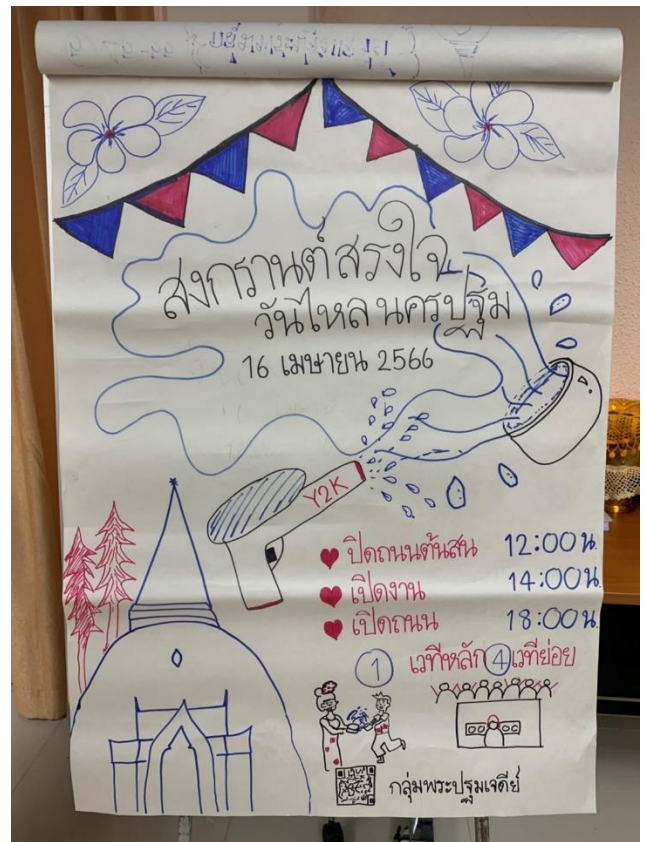 สงกรานต์สรงใจ
วันไหลนครปฐม
16 เมษายน 2566
Y2K
ปิดถนนต้นสน 12:00 น.
เปิดงาน 14:00 น.
เปิดถนน 18:00 น.
1 เวทีหลัก 4 เวทีย่อย
กลุ่มพระปฐมเจดีย์